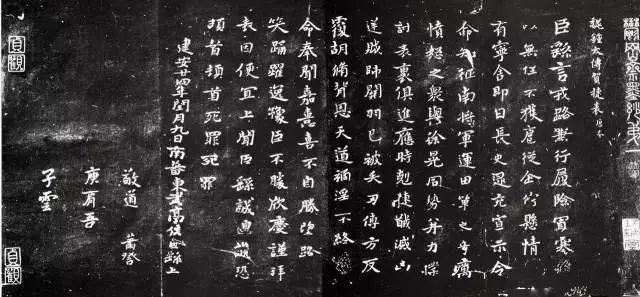 魏鍾太傅賀捷表
臣繇言戎路兼行履險冒寒臣
以無任不獲扈從企佇懸情無
有寧舍即日長史逮充宣示令
命知征南將軍運田單之奇厲
憤怒之衆與徐晃同勢并力撲
討表裏俱進應時剋捷馘滅凶
逆賊帥關羽已被矢刃傅方反
覆胡脩背恩天道禍淫不終
命奉聞嘉憙喜不自勝望路
笑踊躍逸豫臣不勝欣慶謹拜
表因便宜上聞臣繇誠惶誠恐
頓首頓首死罪死罪
建安廿四年閏月九日南蕃東武亭侯臣繇上
敬道 蕭登
庾肩吾
子雲
貞觀
貞觀